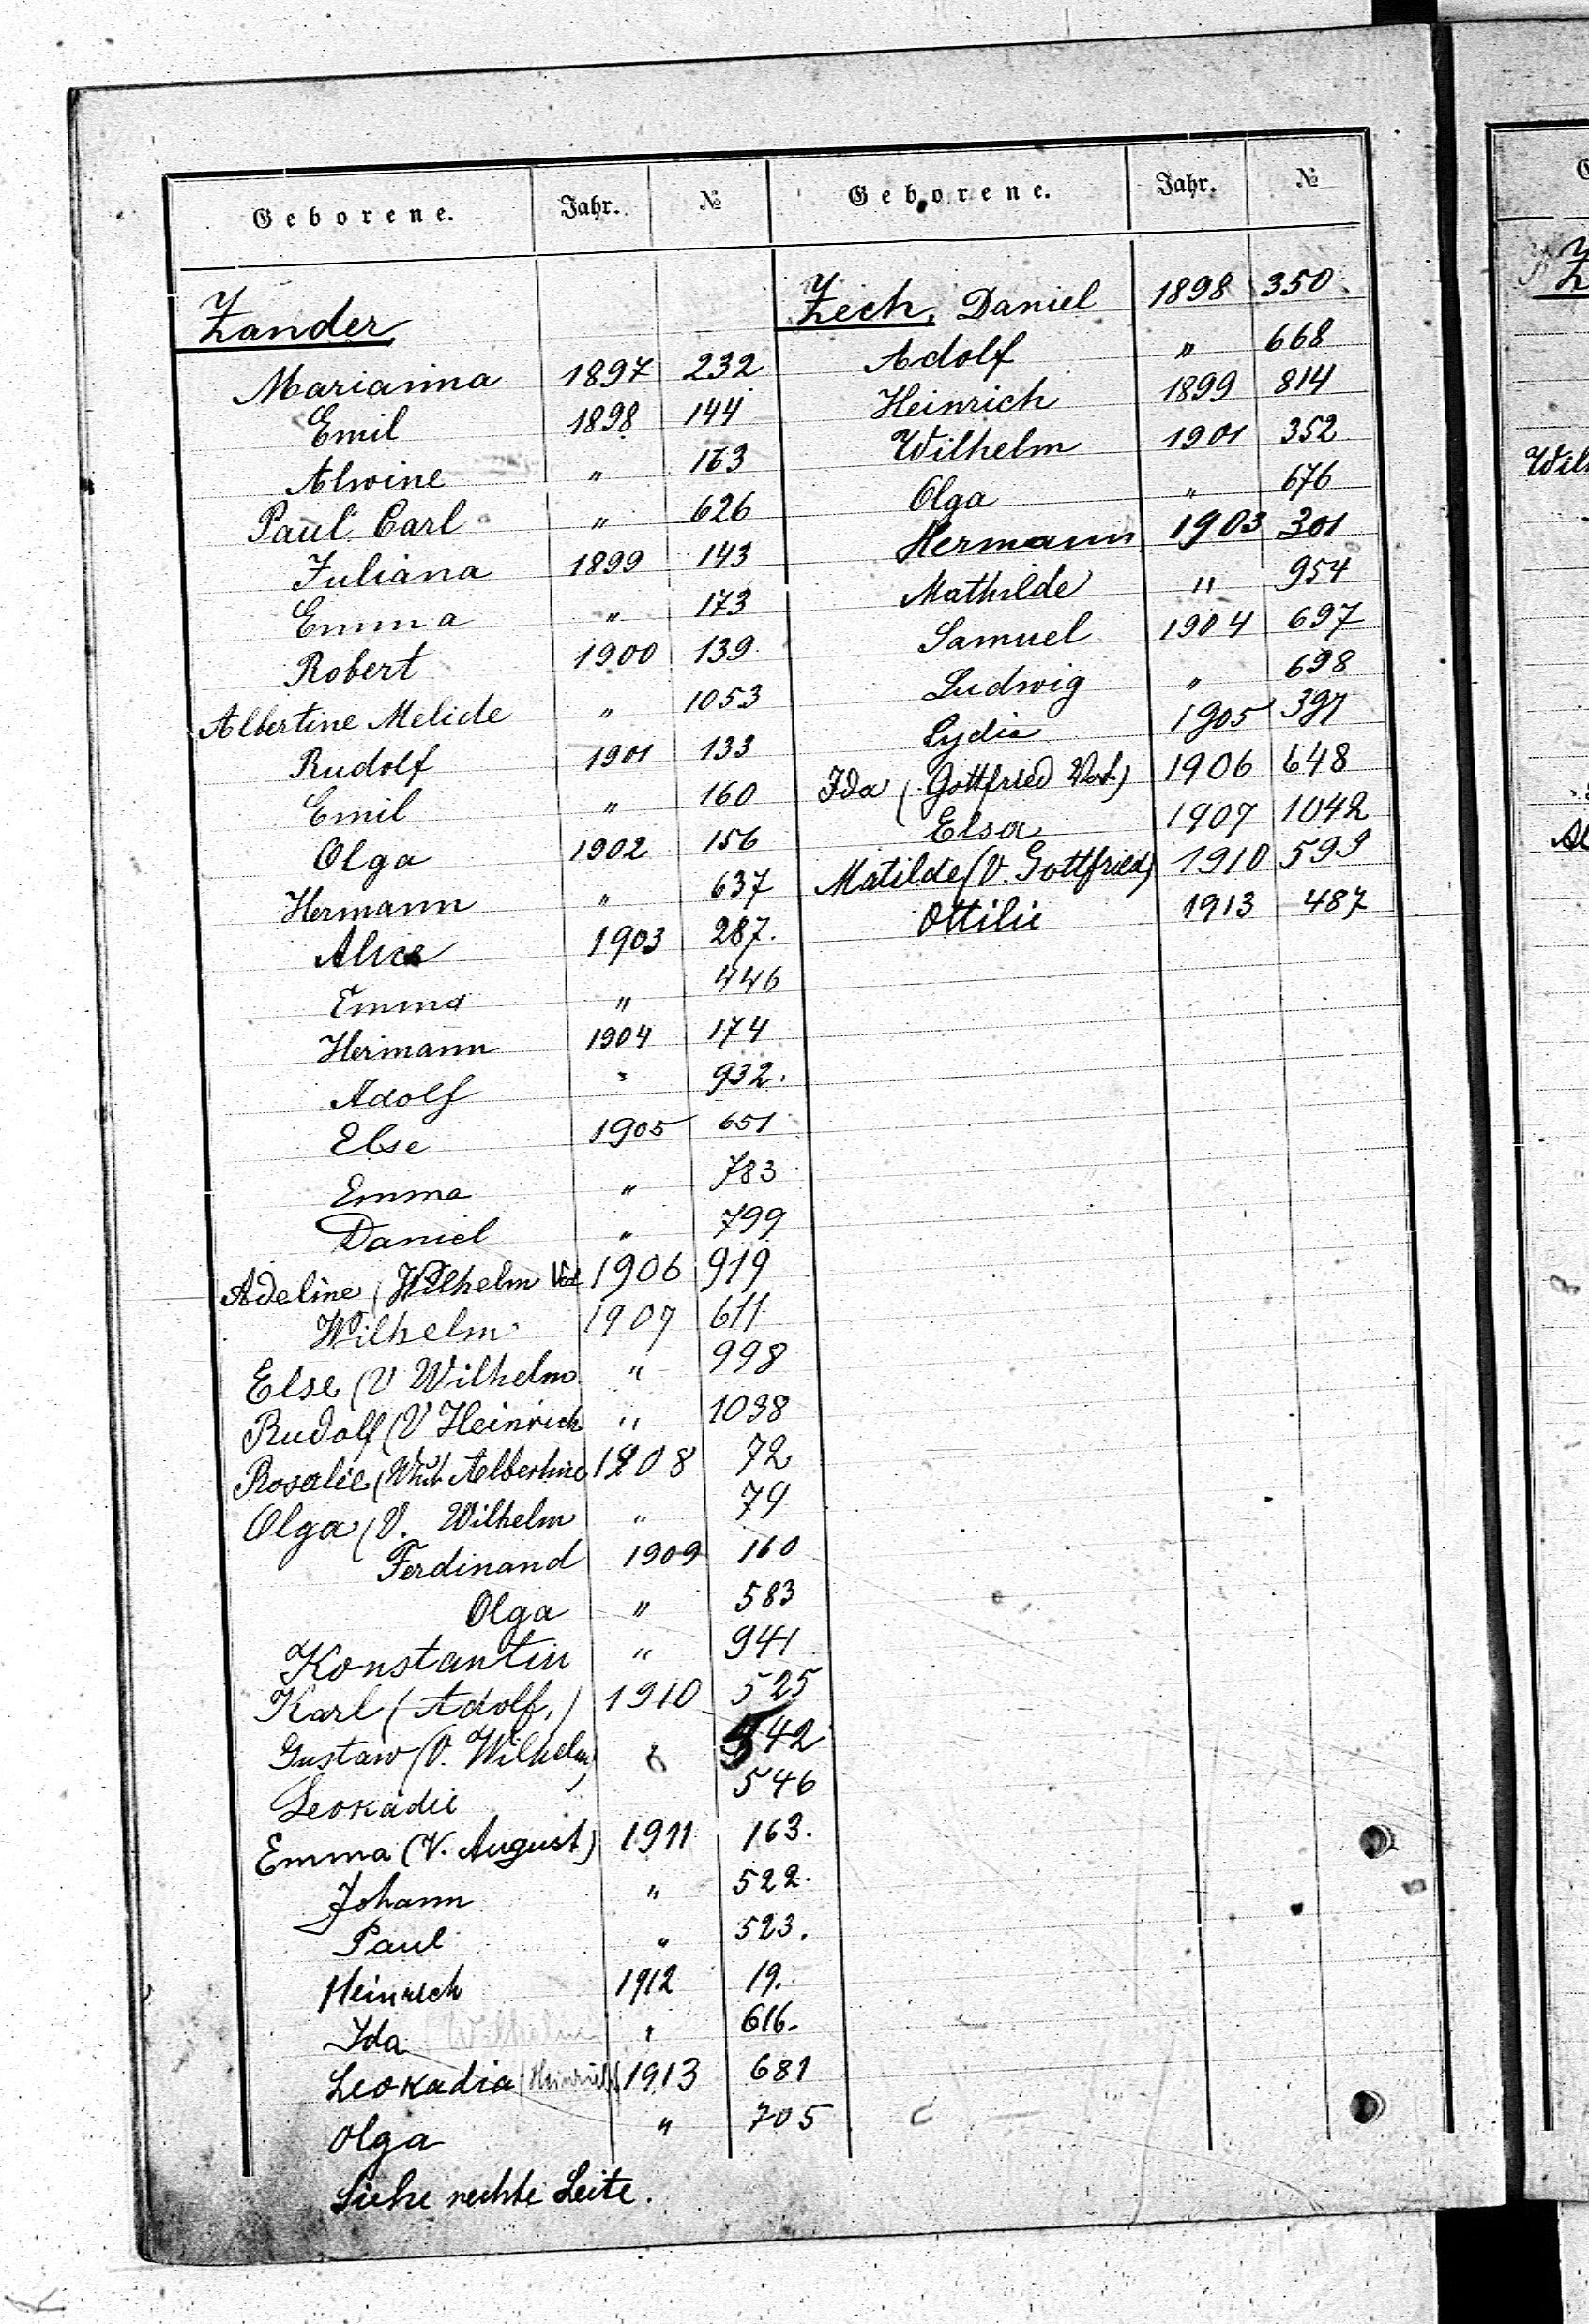 Geborene. Jahr. №
Zander,
Marianna 1897 232
Emil 1898 144
Alwine " 163
Paul Carl " 626
Juliana 1899 143
Emma " 173
Robert 1900 139
Albertine Melide " 1053
Rudolf 1901 133
Emil " 160
Olga 1902 156
Hermann " 637
Alice 1903 287.
Emma " 446
Hermann 1904 174
Adolf " 932.
Else 1905 651
Emma " 783
Daniel " 799
Adeline (Wilhelm Vat 1906 919
Wilhelm 1907 611
Else (V Wilhelm " 998
Rudolf (V Heinrich " 1038
Rosalie ( Albertine 1908 72
Olga (V. Wilhelm " 79
Ferdinand 1909 160
Olga " 583
Konstantin " 941
Karl (Adolf,) 1910 525
Gustaw (V. Wilhelm) " 542
Leokadie 546
Emma (V. August) 1911 163.
Johann " 522.
Paul " 523.
Heinrich 1912 19.
Ida (Wilhelm " 616.
Leokadia (Heinrich) 1913 681
Olga " 705
Siehe rechte Seite.
Geborene. Jahr. №
Zech, Daniel 1898 350.
Adolf " 668
Heinrich 1899 814
Wilhelm 1901 352
Olga " 676
Hermann 1903 301
Mathilde " 954
Samuel 1904 697
Ludwig " 698
Lydia 1905 397
Ida (Gottfried Vat.) 1906 648
Elsa 1907 1042
Matilde (V. Gottfried) 1910 599
Ottilie 1913 487